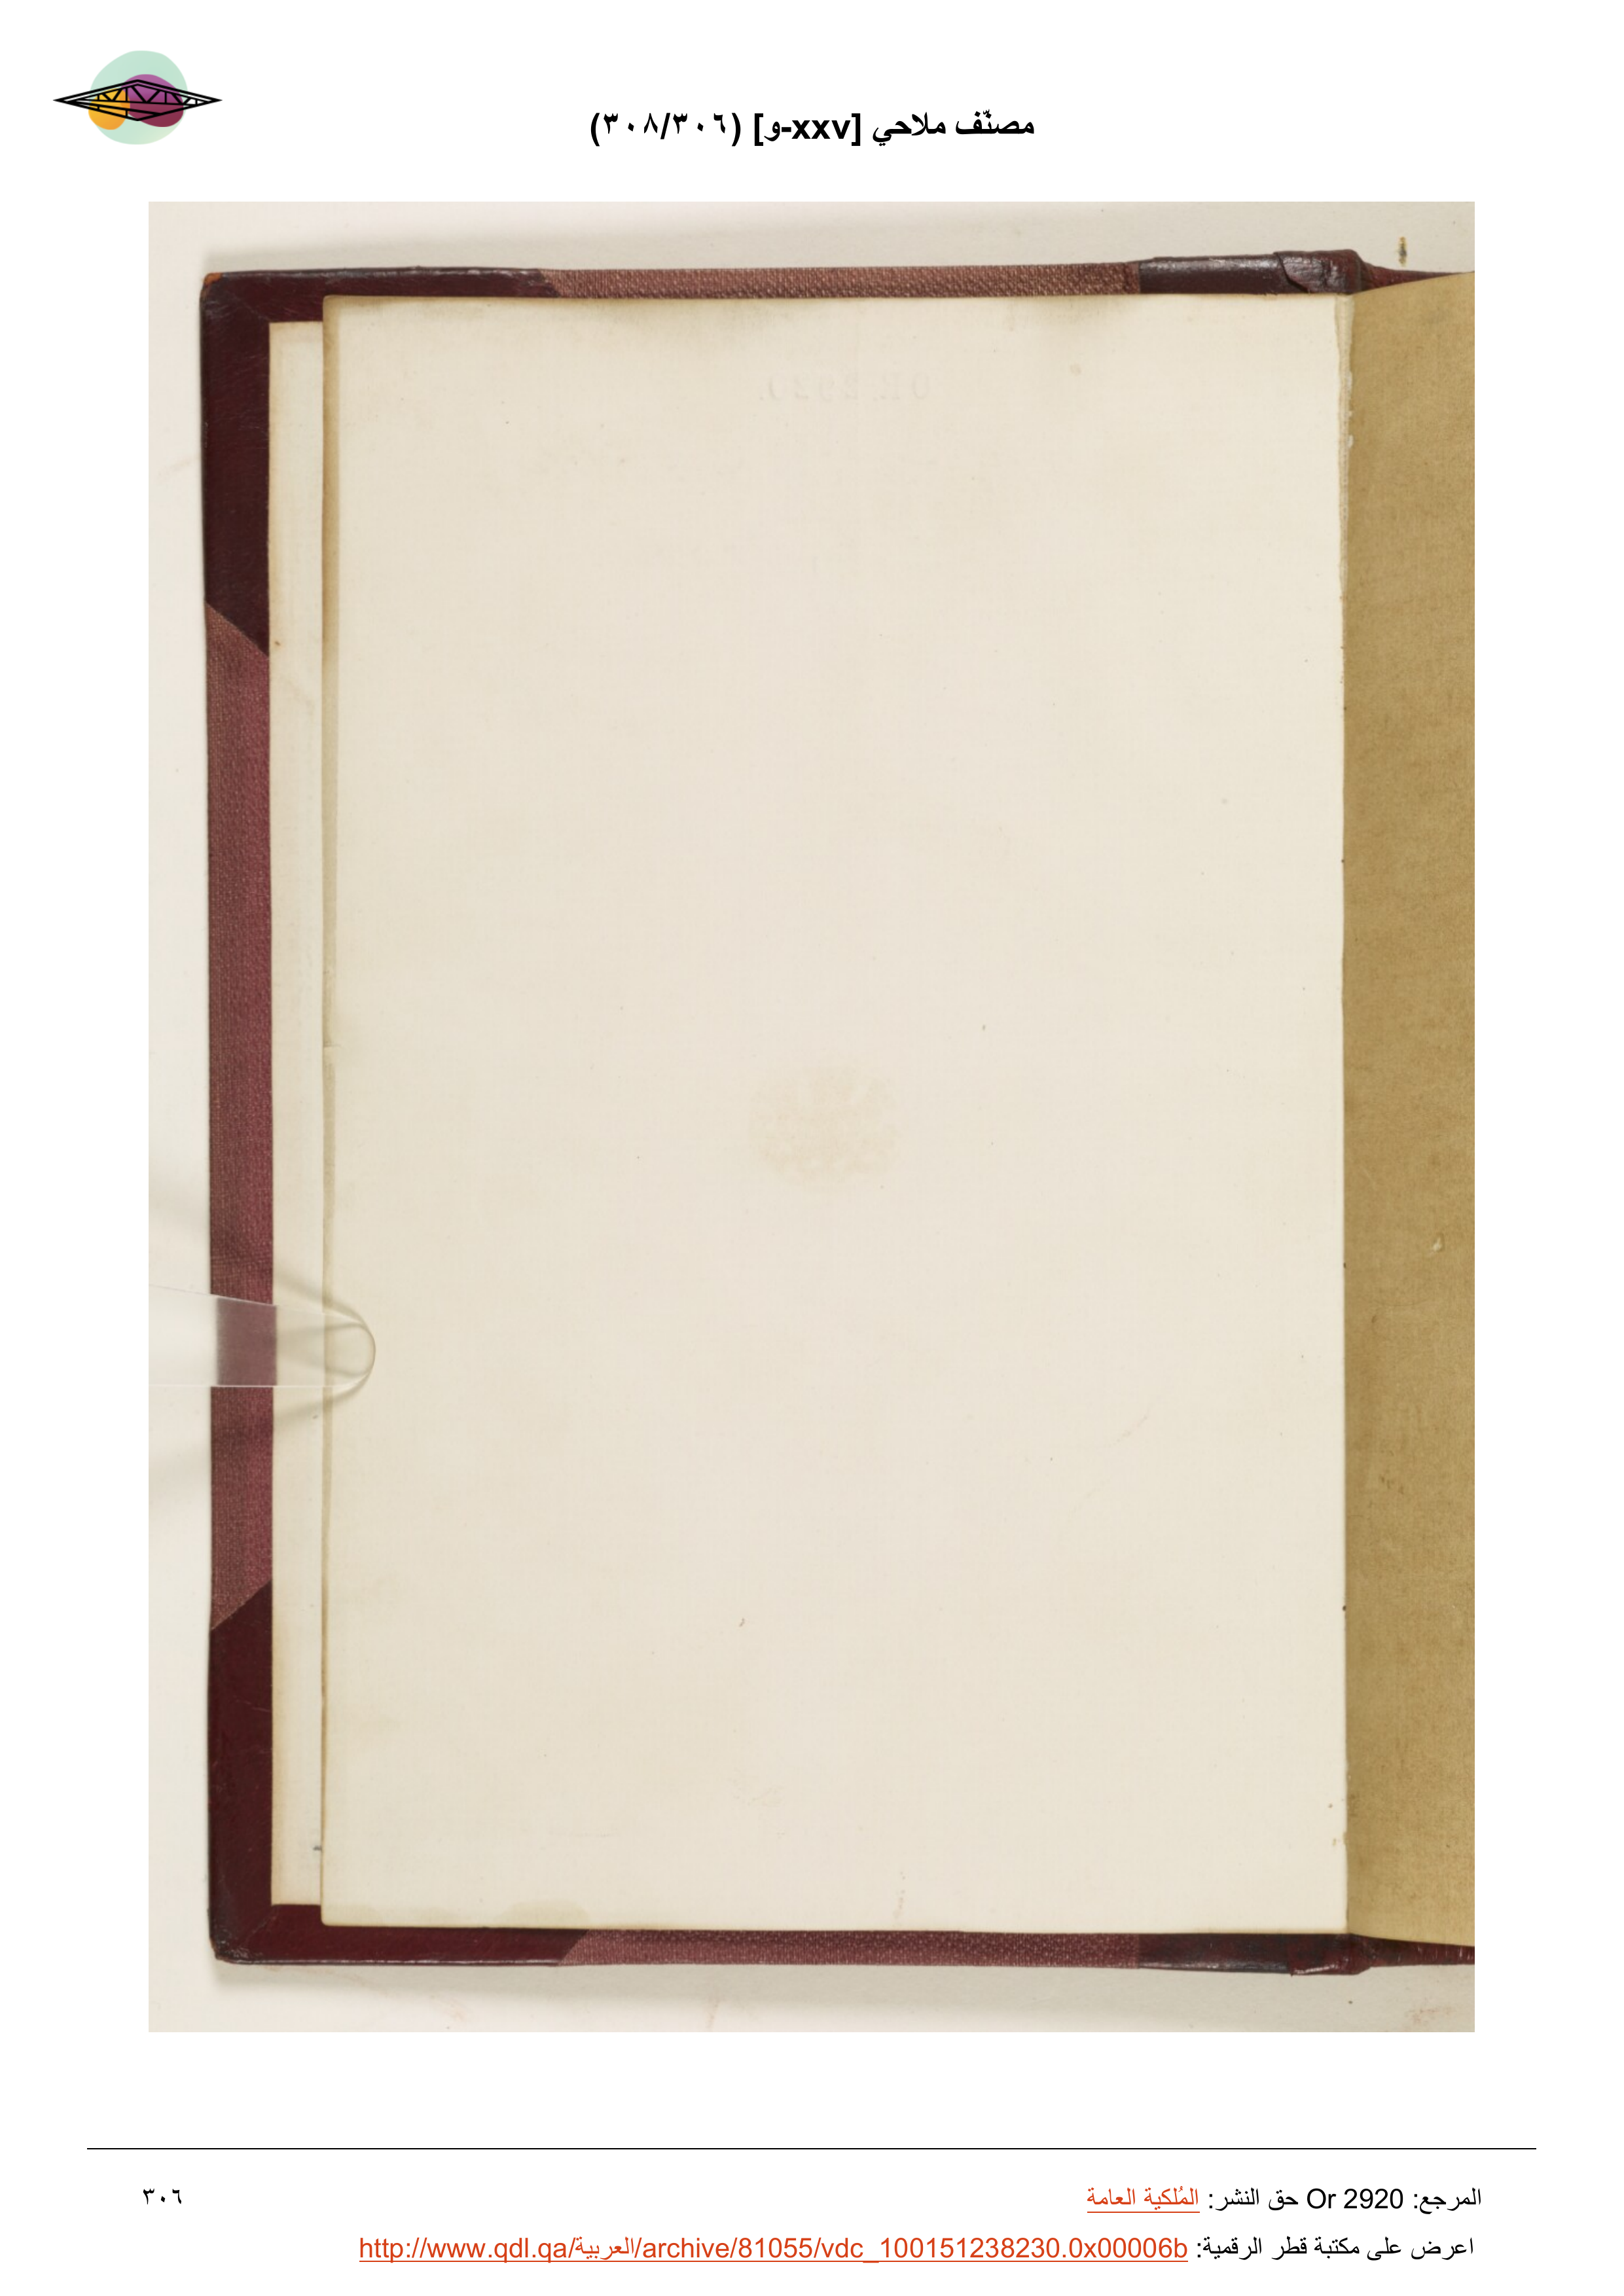 مصنّف ملاحي [xxv-و] (٣٠٨/٣٠٦)
OR. 2920.
المرجع: Or 2920 حق النشر: المُلكية العامة
٣٠٦
اعرض على مكتبة قطر الرقمية: http://www.qdl.qa/العربية/archive/81055/vdc_100151238230.0x00006b